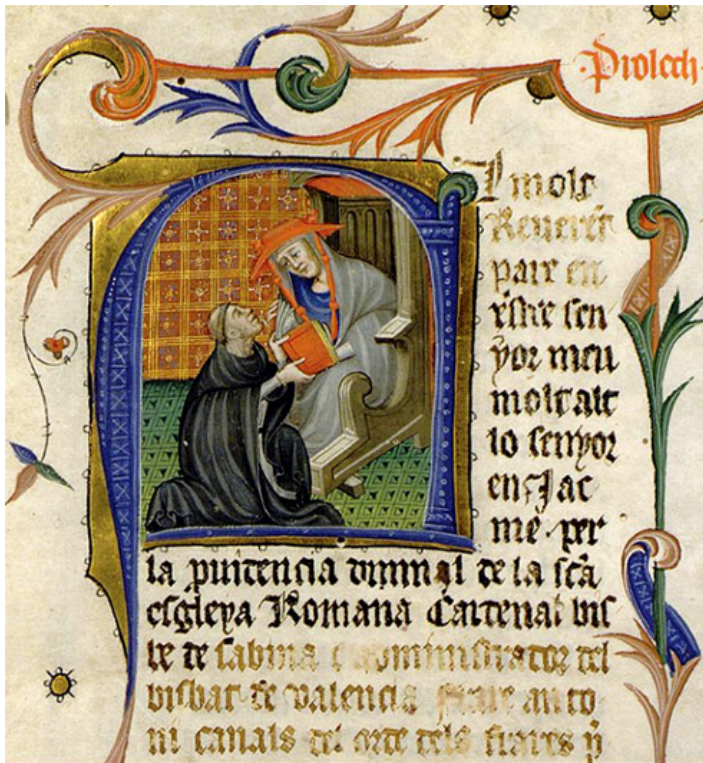 Prolech
l molt
Reuerēt
pare en
sen
yor meu
molt alt
lo senyor
en Jac
me · per
la puidencia diuinal de la scā
esgleya Romana Cardenal bis
be de sabina e administrador del
bisbat de valencia frare anto
ni canals del orde dels frares p